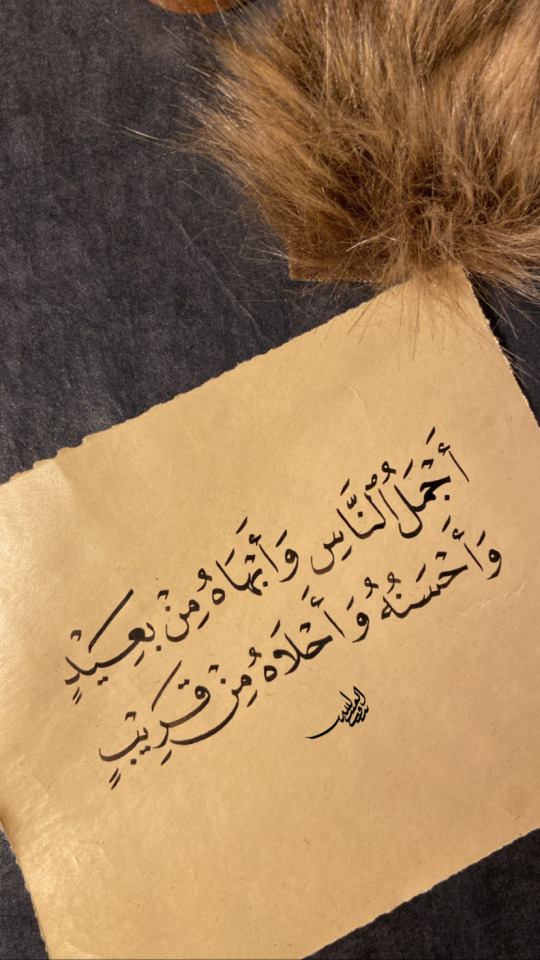 أَجْمَلُ ٱلنَّاسِ وَأَبْهَاهُ مِنْ بعِيْدٍ
وَأَحْسَنُهُ وَأَحْلَاهُ مِنْ قَرِيْبٍ